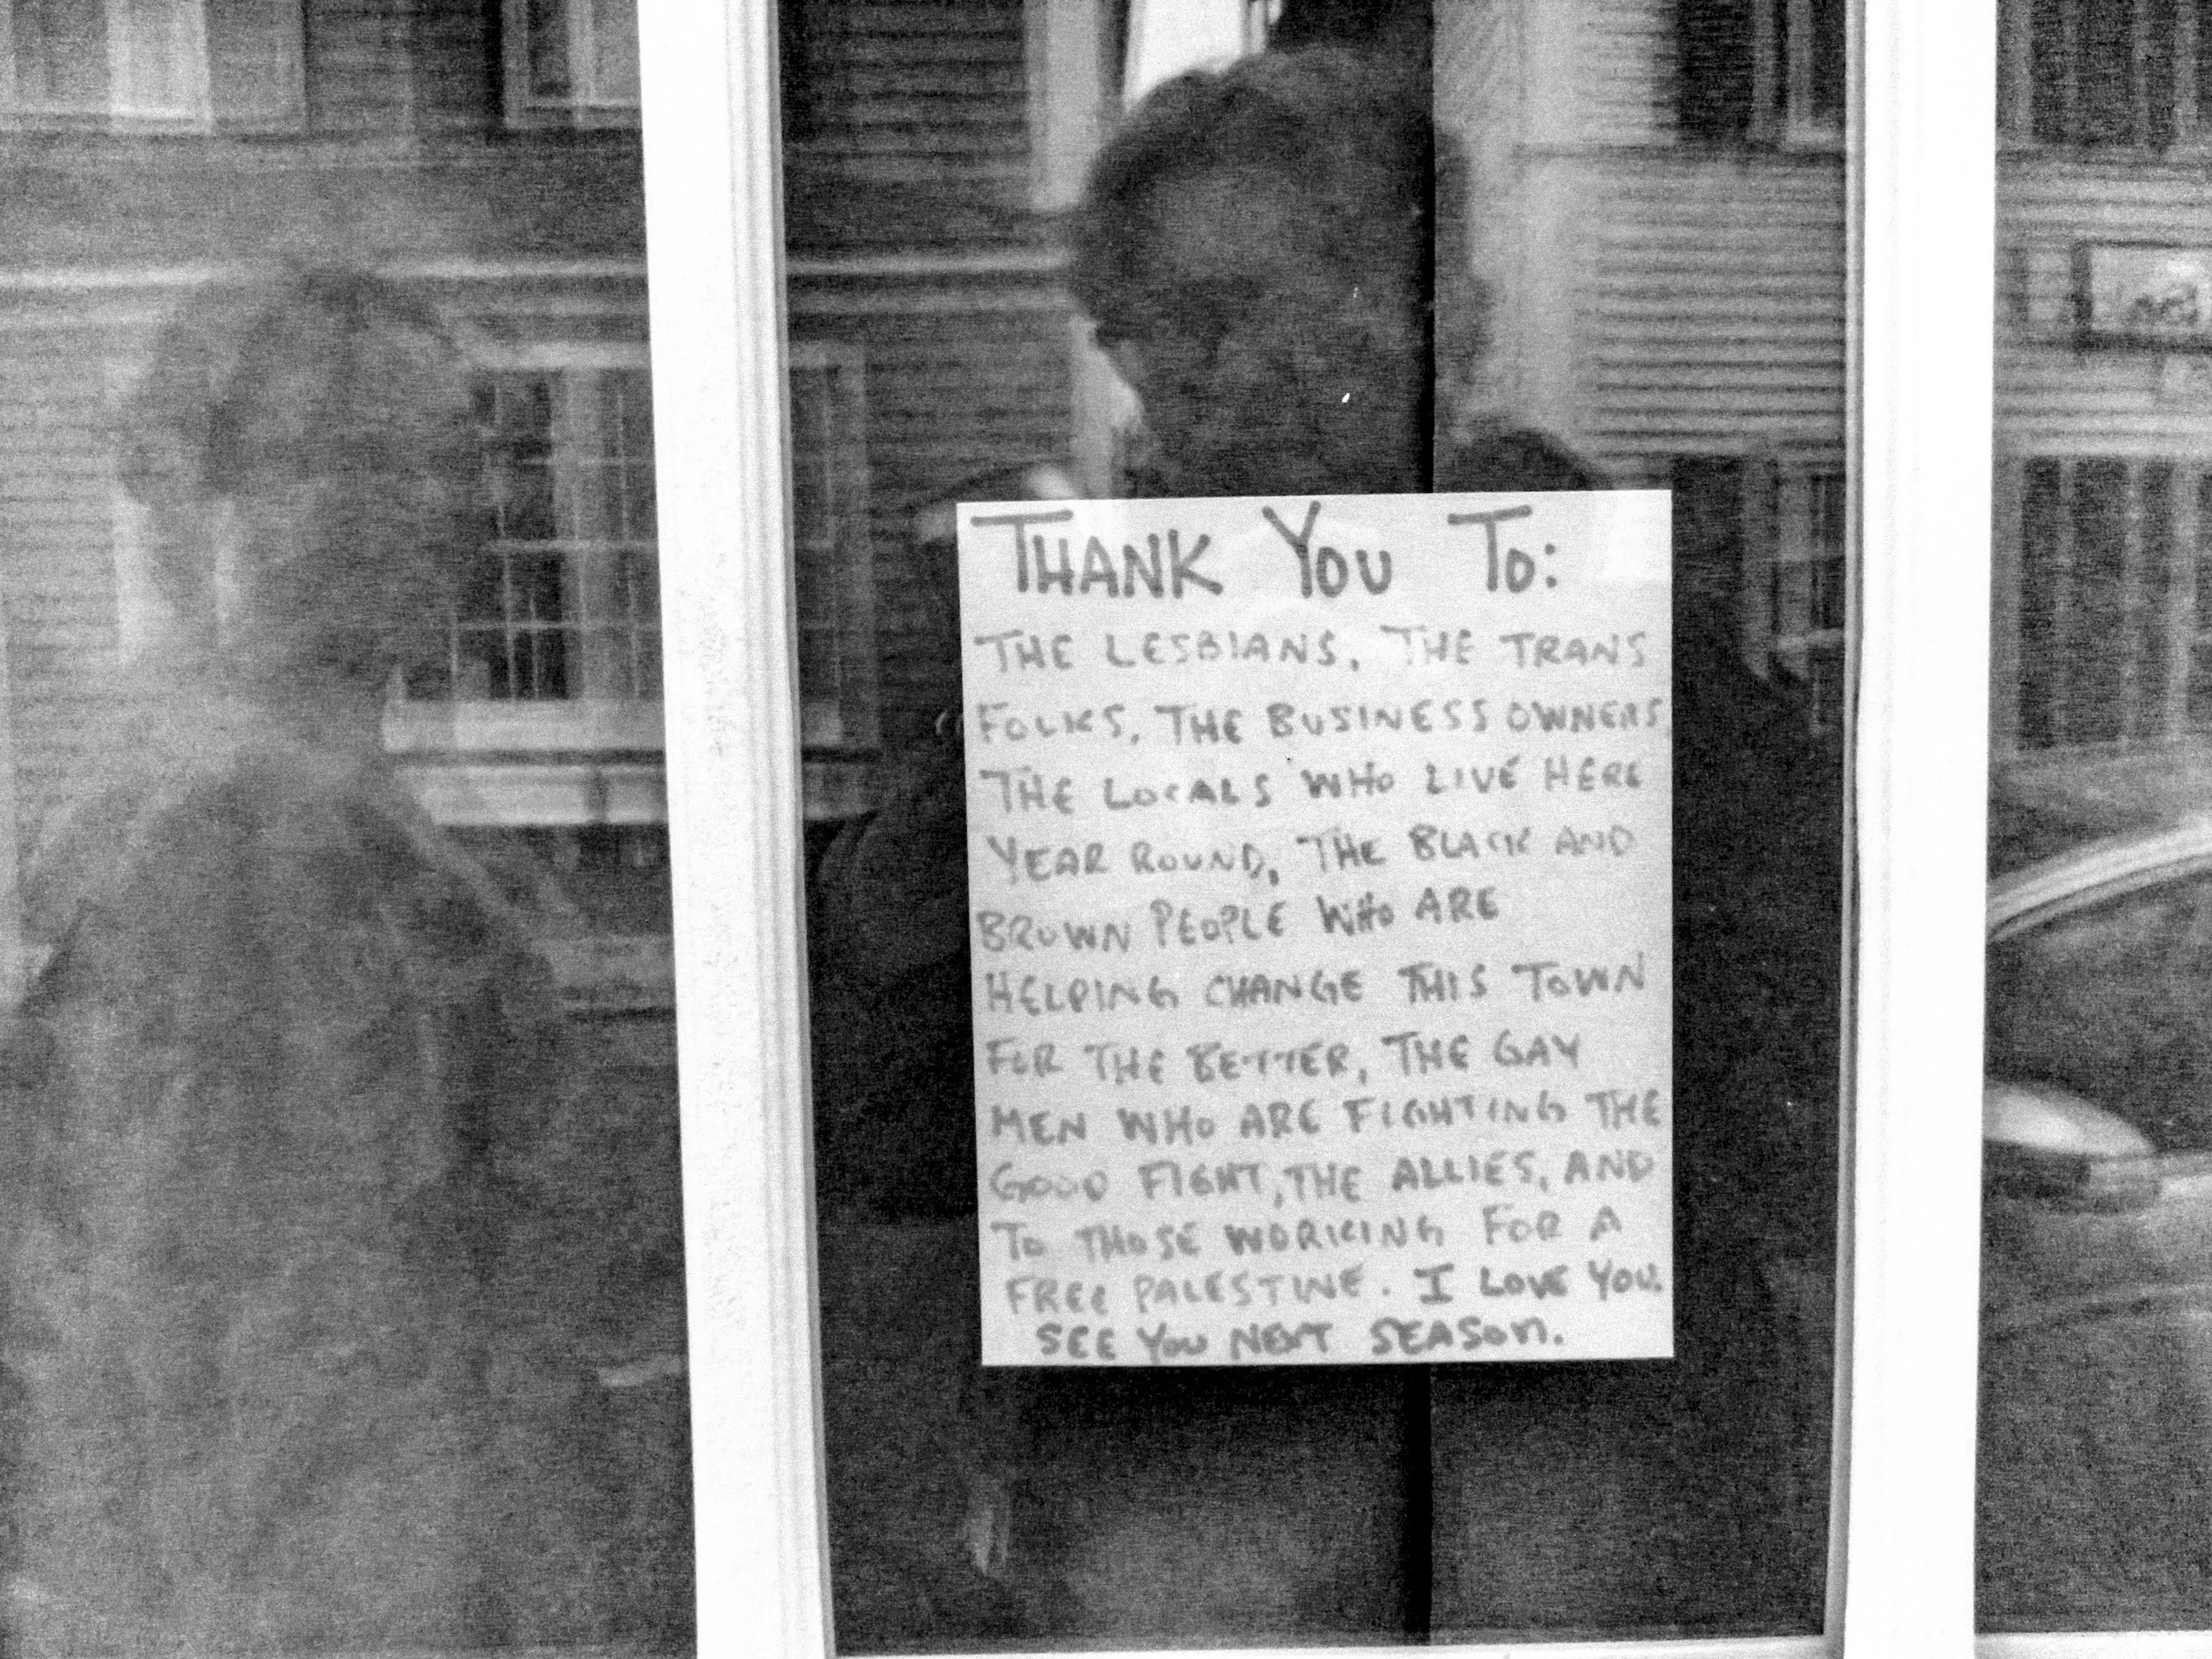 THANK YOU TO:
THE LESBIANS, THE TRANS
FOLKS, THE BUSINESS OWNERS
THE LOCALS WHO LIVE HERE
YEAR ROUND, THE BLACK AND
BROWN PEOPLE WHO ARE
HELPING CHANGE THIS TOWN
FOR THE BETTER, THE GAY
MEN WHO ARE FIGHTING THE
GOOD FIGHT, THE ALLIES, AND
TO THOSE WORKING FOR A
FREE PALESTINE. I LOVE YOU.
SEE YOU NEXT SEASON.